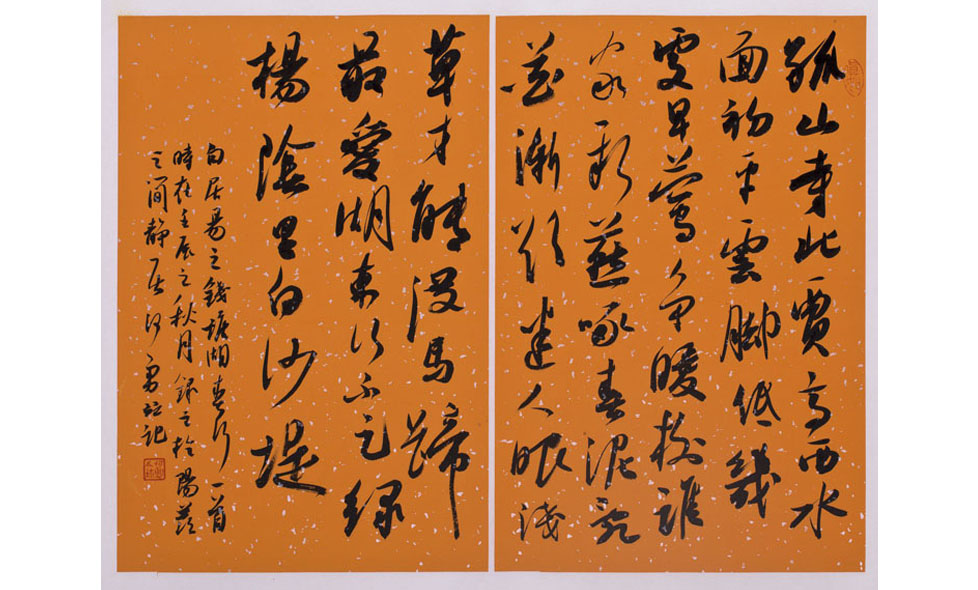 孤山寺北賈亭西水
面初平雲腳低幾
處早鶯爭暖樹誰
家新燕啄春泥亂
花漸欲迷人眼淺
草才能沒馬蹄
最愛湖東行不足綠
楊陰里白沙堤
白居易之錢塘湖春行一首
時在壬辰之秋月錄之於陽羨
之簡靜居記